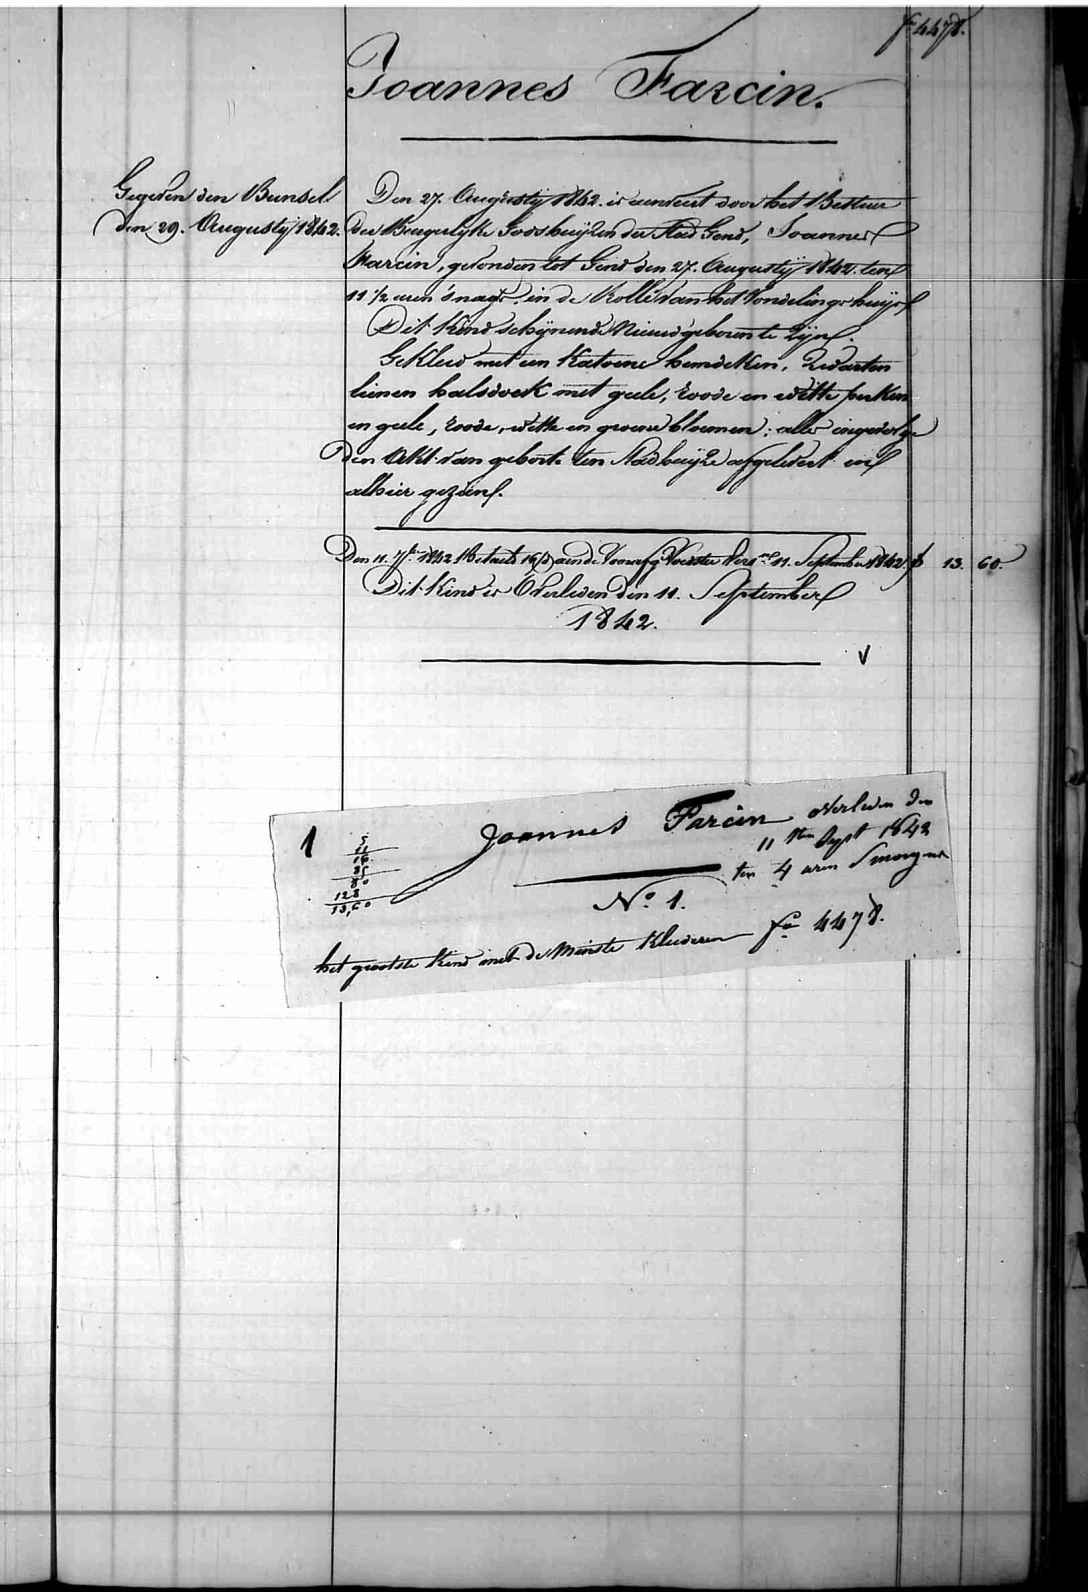 fº 4478.
Joannes Farcin.
Gegeven den Bunsel
den 29. Augusty 1842.
Den 27. Augusty 1842. is aenveert door het Bestier
der Burgerlyke Godshuyzen der Stad Gend, Joannes
Farcin, gevonden tot Gend den 27. Augusty 1842. ten
11 1/2 uren 's nagts, in de Rolle van het Vondelingshuys
Dit kind schynende Nieuwgeboren te Zyn.
Gekleed met een Katoene hemdeken, Zwarten
lienen halsdoek met geele, roode en witte perken
en geele, roode, witte en groene bloemen; alles ingevolge
den Akt van geboorte ten Stadhuyze afgelevert en
alhier gezien.
Den 11. 7ber 1842 Betaeld 16/d aen de Voedster 11. September 1842. f 13. 60.
Dit Kind is Overleden den 11. September
1842.
V
1
5
11
16
85
80
128
13,60
Joannes Farcin overleden den
11 sten Sept 1842
ten 4 uren Smorgens
Nº 1.
het grootste kind met de Minste Kleederen fº 4478.